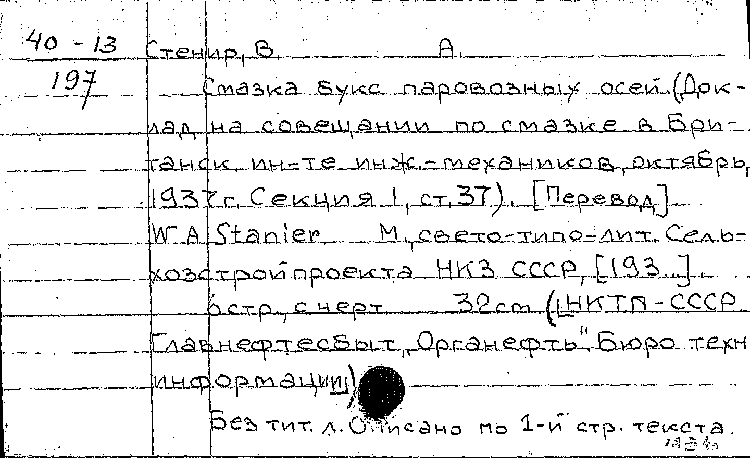 40-13
197
Стенир, В. А.
Смазка букс паровозных осей. (Док-
лад на совещании по смазке в Бри-
танск. ин-те инж.-механиков, октябрь,
1937 г. Секция 1, ст. 37). [Перевод]
W A Stanier М., свето-типо-лит. Сель-
хозстройпроекта НКЗ СССР, [193...].
стр., с черт. 32 cm. (НКТП-СССР
Главнефтесбыт, "Органефть" Бюро техн
информации)
Без тит. л. Описано по 1-й стр. текста.